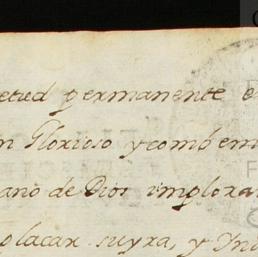 etud permanente e
n Glorioso y comò em
ano de Dios imploran
placar suyra, y Yn